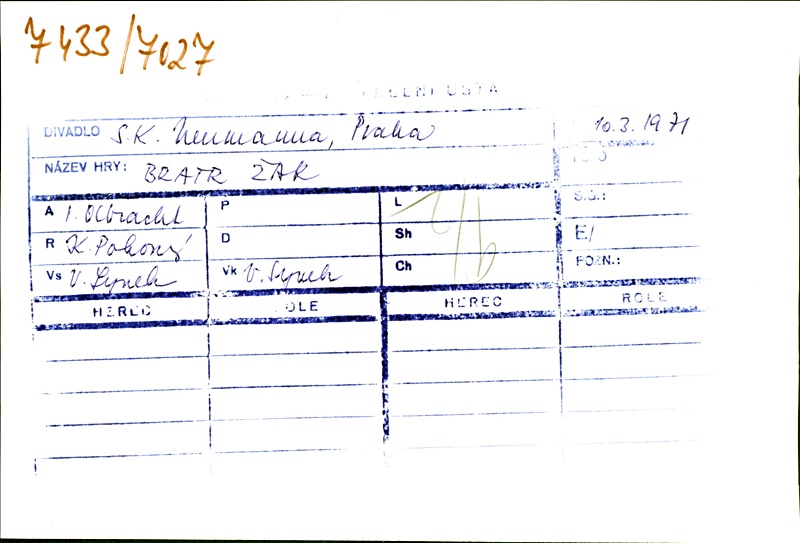 7433/7027
DIVADLO S.K. Neumanna, Praha
10.3.1971
NÁZEV HRY: BRATR ŽAK
A I. Olbracht P L S.G.:
R K. Pokorný D Sh E/
Vs V. Synek Vk V. Synek Ch POZN.:
HEREC ROLE HEREC ROLE